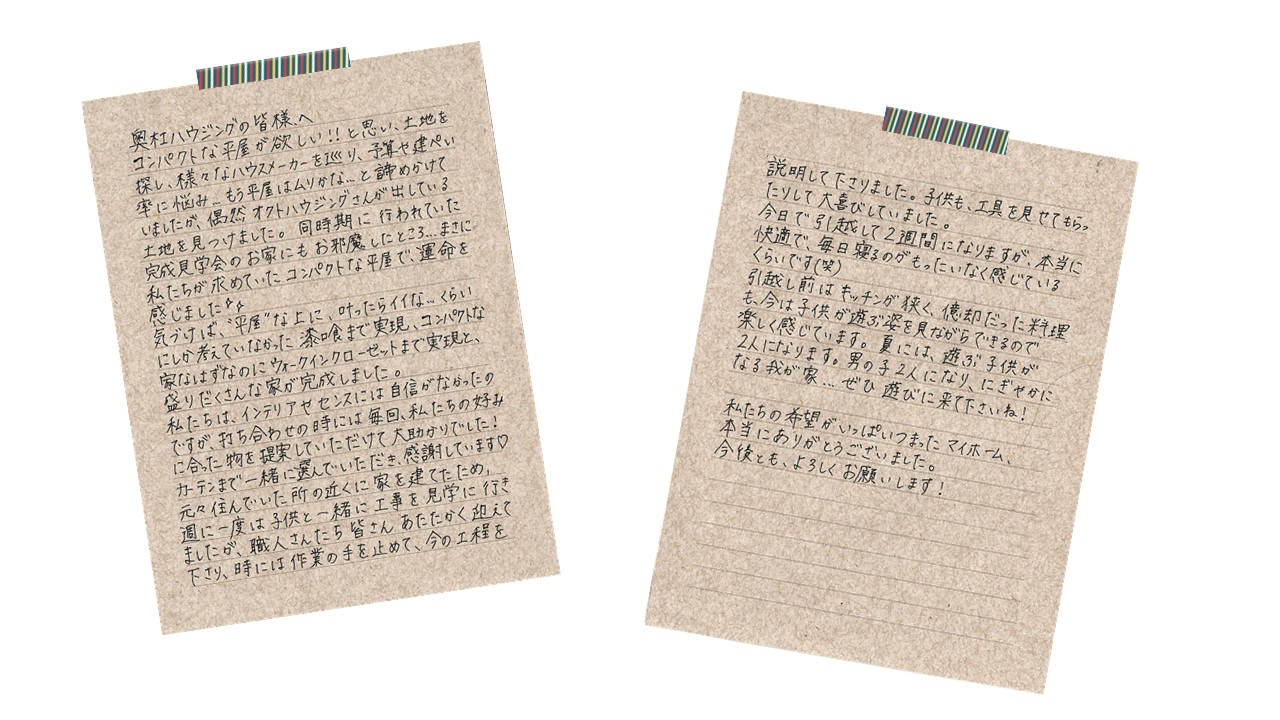 奥杜ハウジングの皆様へ
コンパクトな平屋が欲しい!!と思い、土地を
探し、様々なハウスメーカーを巡り、予算や建ぺい
率に悩み…もう平屋はムリかな…と諦めかけて
いましたが、偶然オクトハウジングさんが出している
土地を見つけました。同時期に行われていた
完成見学会のお家にもお邪魔したところ…まさに
私たちが求めていたコンパクトな平屋で、運命を
感じました☆☆
気づけば、"平屋"な上に、叶ったらイイな…くらい
にしか考えていなかった漆喰まで実現、コンパクトな
家なはずなのにウォークインクローゼットまで実現と、
盛りだくさんな家が完成しました。
私たちは、インテリアセンスには自信がなかったの
ですが、打ち合わせの時には毎回、私たちの好み
に合った物を提案していただけて大助かりでした!
カーテンまで一緒に選んでいただき、感謝しています♡
元々住んでいた所の近くに家を建てたため、
週に一度は子供と一緒に工事を見学に行き
ましたが、職人さんたち皆さんあたたかく迎えて
下さり、時には作業の手を止めて、今の工程を
説明して下さりました。子供も、工具を見せてもらっ
たりして大喜びしていました。
今日で引越して2週間になりますが、本当に
快適で、毎日寝るのがもったいなく感じている
くらいです(笑)
引越し前はキッチンが狭く、億却だった料理
も、今は子供が遊ぶ姿を見ながらできるので
楽しく感じています。夏には、遊ぶ子供が
2人になります。男の子2人になり、にぎやかに
なる我が家…ぜひ遊びに来て下さいね!
私たちの希望がいっぱいつまったマイホーム、
本当にありがとうございました。
今後とも、よろしくお願いします!